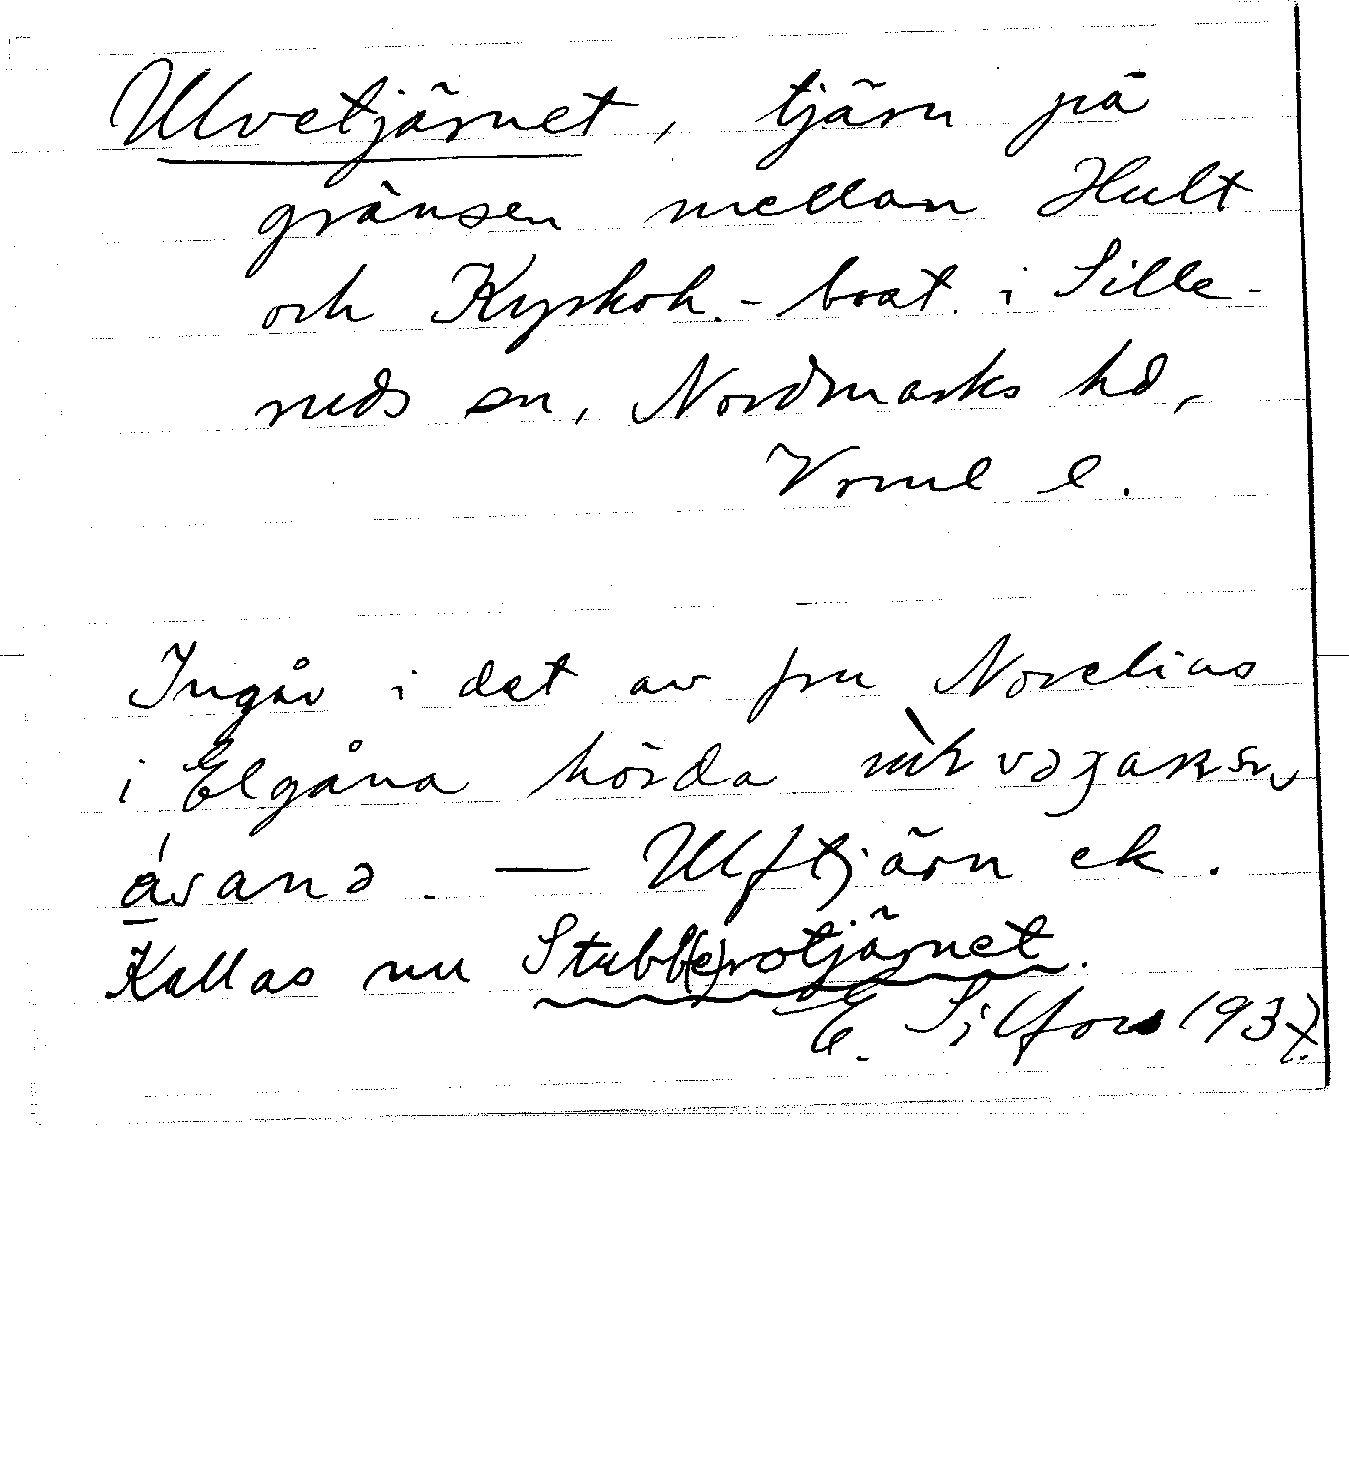 Ulvetjärnet, tjärn på
gränsen mellan Hult
och Kyrkoh.-bost. i Sille-
ruds sn, Nordmarks hd,
Vrml l.
Ingår i det av fru Norelius
i Elgåna hörda
ásanə. — Ulftjärn ek.
Kallas nu Stubb(e)rotjärnet.
E. Silfors 1937.